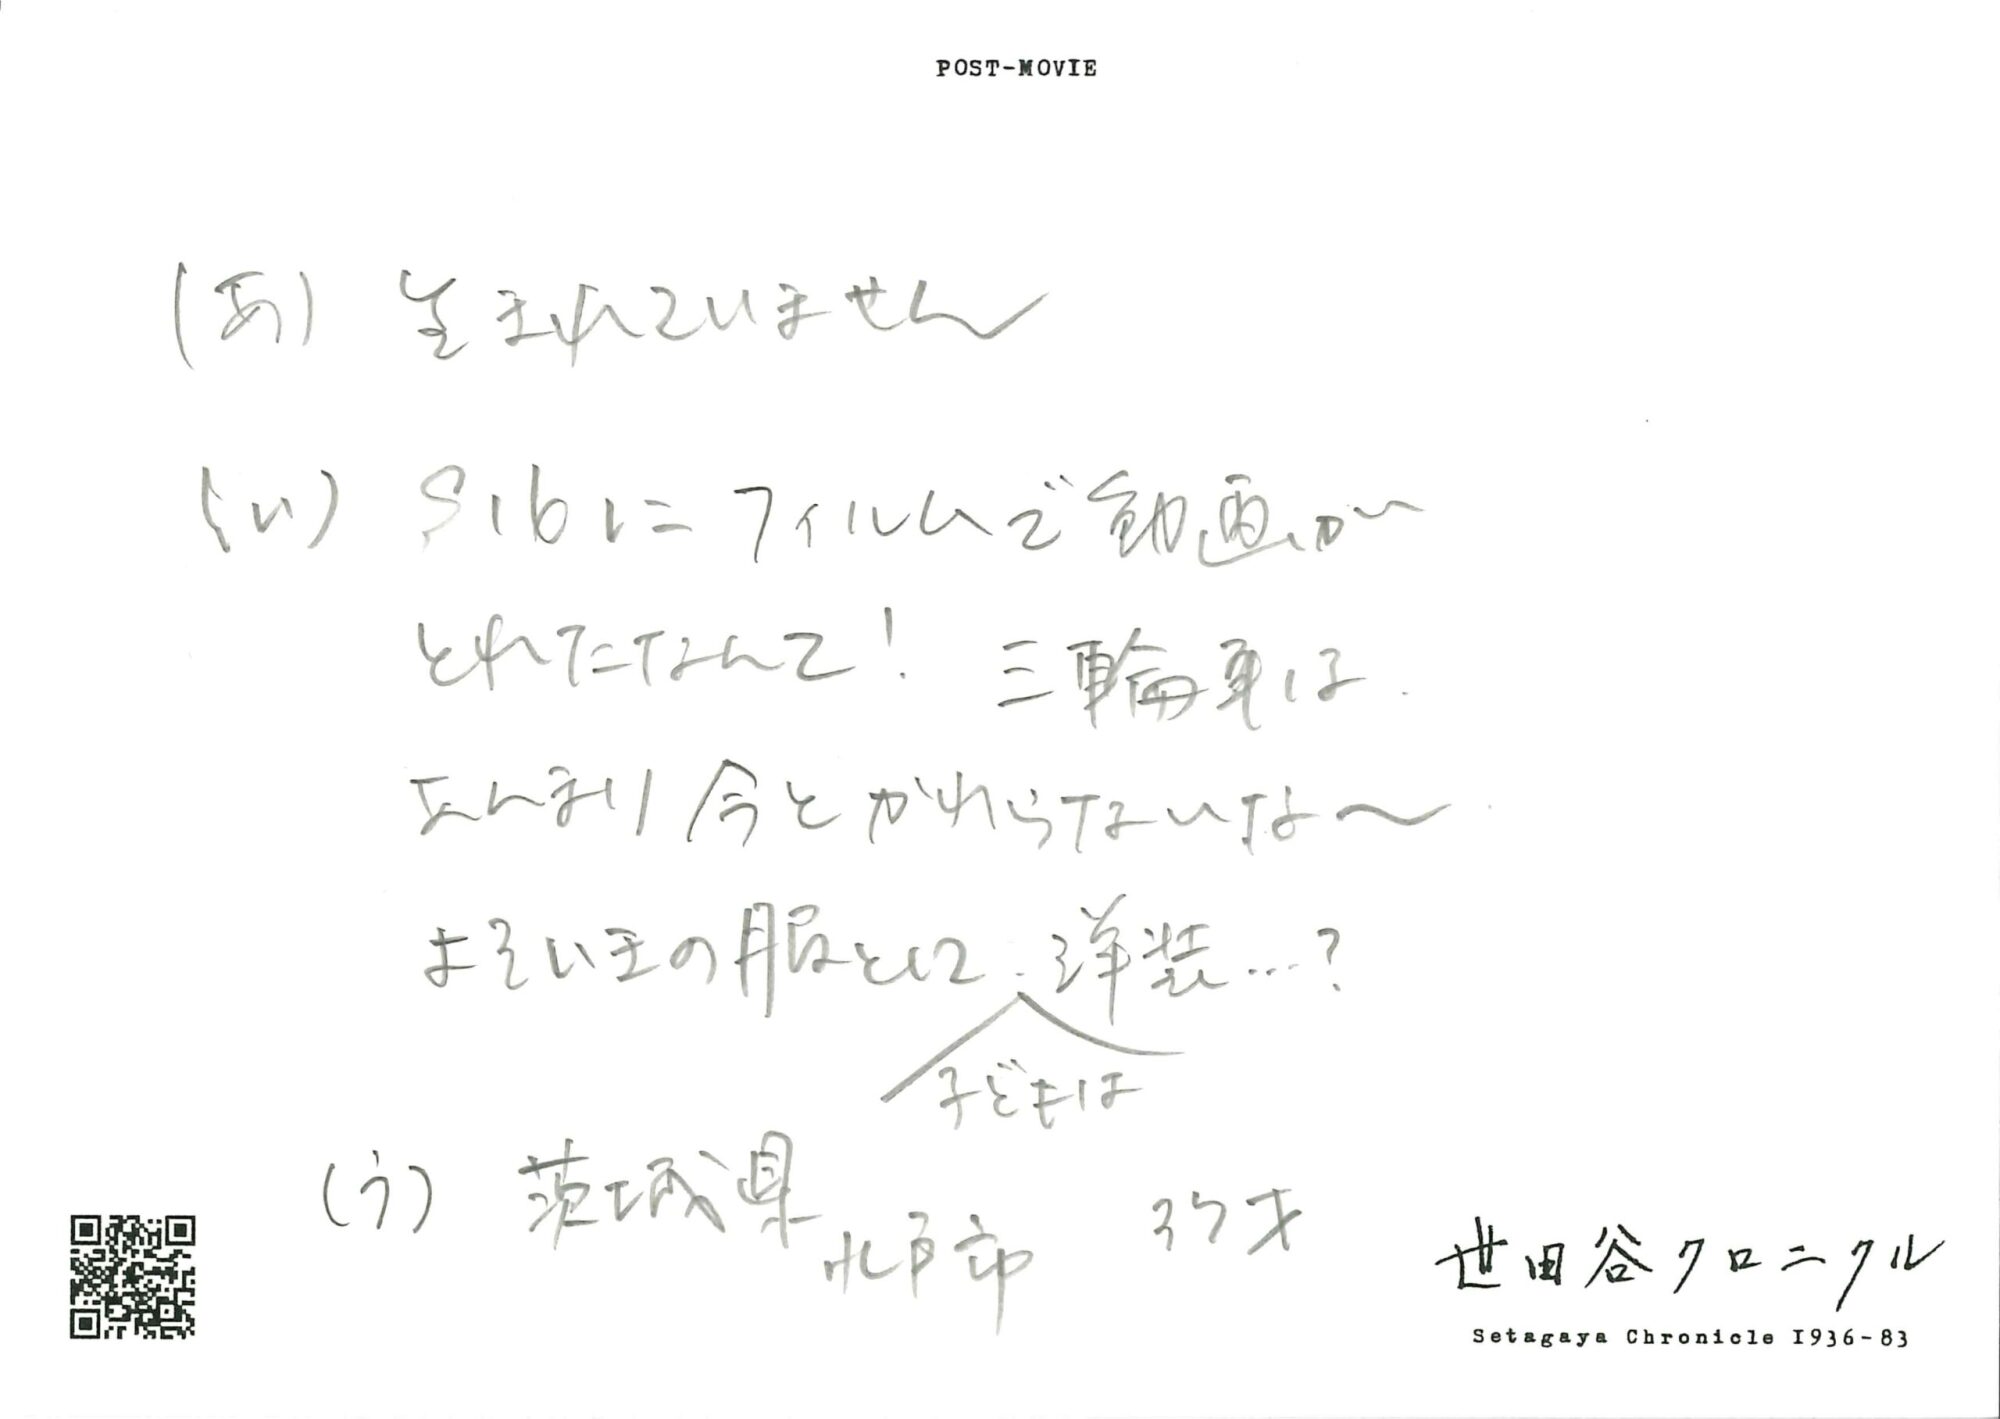 POST-MOVIE
(あ) 生まれていません
(い) S16にフィルムで動画が
とれたなんて! 三輪車は
あんまり今とかわらないな〜
よそいきの服として 洋装…?
子どもは
(う) 茨城県
水戸市 37才
世田谷クロニクル
Setagaya Chronicle 1936-83